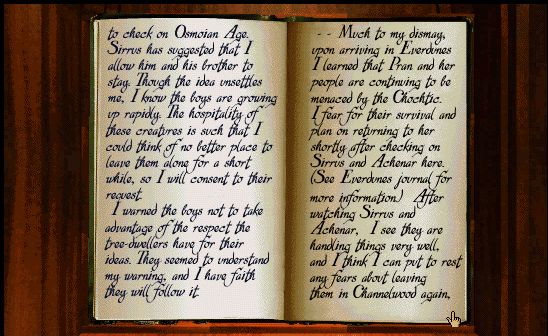 to check on Osmoian Age.
Sirrus has suggested that I
allow him and his brother to
stay. Though the idea unsettles
me, I know the boys are growing
up rapidly. The hospitality of
these creatures is such that I
could think of no better place to
leave them alone for a short
while, so I will consent to their
request.
I warned the boys not to take
advantage of the respect the
tree-dwellers have for their
ideas. They seemed to understand
my warning, and I have faith
they will follow it.
-- Much to my dismay,
upon arriving in Everdunes
I learned that Pran and her
people are continuing to be
menaced by the Chochtic.
I fear for their survival and
plan on returning to her
shortly after checking on
Sirrus and Achenar here.
(See Everdunes journal for
more information.) After
watching Sirrus and
Achenar, I see they are
handling things very well,
and I think I can put to rest
any fears about leaving
them in Channelwood again,